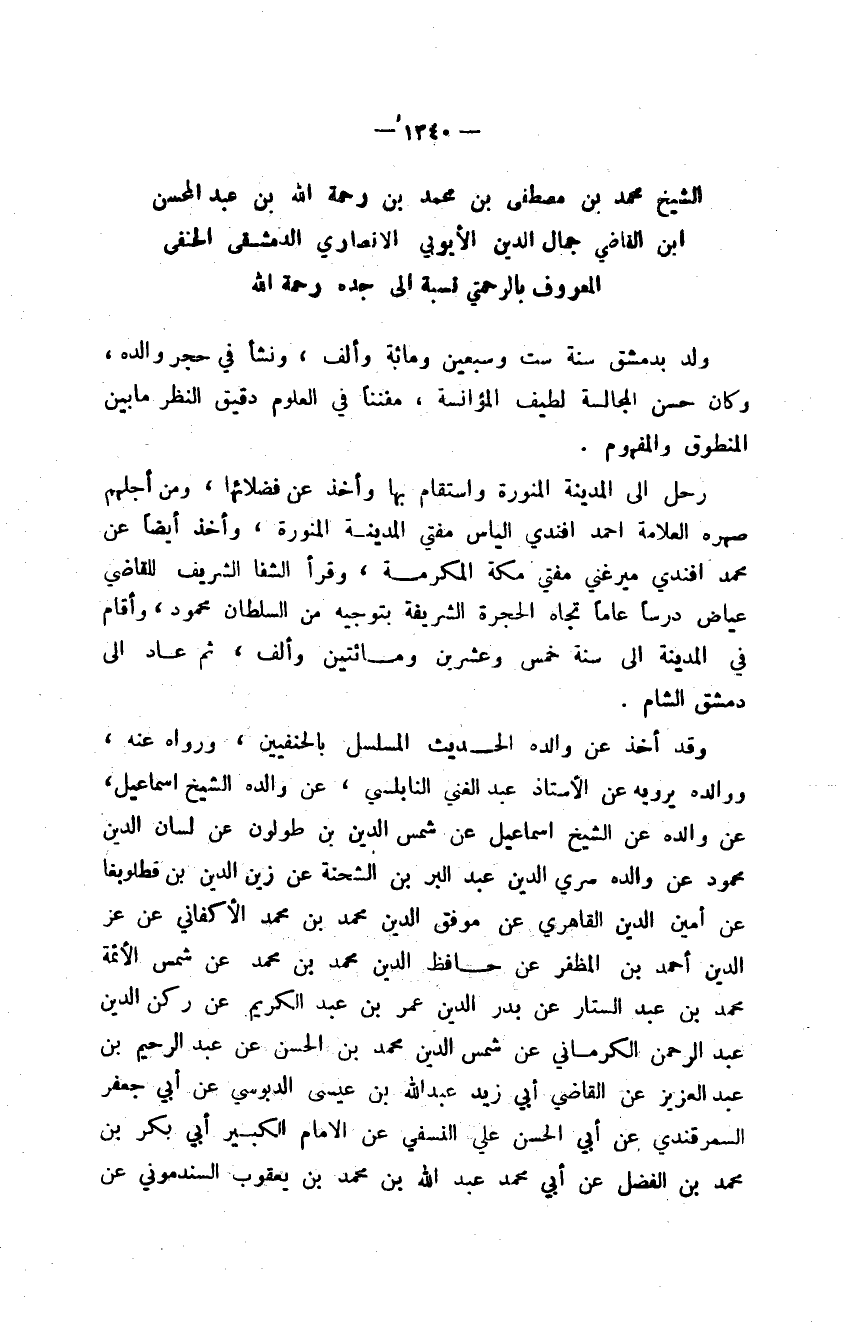 — ١٣٤٠ —
الشيخ محمد بن مصطفى بن محمد بن رحمة الله بن عبد المحسن
ابن القاضي جمال الدين الأيوبي الانصاري الدمشقى الحنفى
المعروف بالرحمتي نسبة الى جده رحمة الله
ولد بدمشق سنة ست وسبعين ومائة وألف ، ونشأ في حجر والده ،
وكان حسن المجالسة لطيف المؤانسة ، مفنناً في العلوم دقيق النظر مابين
المنطوق والمفهوم .
رحل الى المدينة المنورة واستقام بها وأخذ عن فضلائها ، ومن أجلهم
صهره العلامة احمد افندي الياس مفتي المدينة المنورة ، وأخذ أيضاً عن
محمد افندي ميرغني مفتي مكة المكرمة ، وقرأ الشفا الشريف للقاضي
عياض درساً عاماً تجاه الحجرة الشريفة بتوجيه من السلطان محمود ، وأقام
في المدينة الى سنة خمس وعشرين ومائتين وألف ، ثم عاد الى
دمشق الشام .
وقد أخذ عن والده الحديث المسلسل بالحنفيين ، ورواه عنه ،
ووالده يرويه عن الأستاذ عبد الغني النابلسي ، عن والده الشيخ اسماعيل ،
عن والده عن الشيخ اسماعيل عن شمس الدين بن طولون عن لسان الدين
محمود عن والده سري الدين عبد البر بن الشحنة عن زين الدين بن قطلوبغا
عن أمين الدين القاهري عن موفق الدين محمد بن محمد الأكفاني عن عز
الدين أحمد بن المظفر عن حافظ الدين محمد بن محمد عن شمس الأئمة
محمد بن عبد الستار عن بدر الدين عمر بن عبد الكريم عن ركن الدين
عبد الرحمن الكرماني عن شمس الدين محمد بن الحسن عن عبد الرحيم بن
عبد العزيز عن القاضي أبي زيد عبدالله بن عيسى الدبوسي عن أبي جعفر
السمرقندي عن أبي الحسن علي النسفي عن الامام الكبير أبي بكر بن
محمد بن الفضل عن أبي محمد عبد الله بن محمد بن يعقوب السندموني عن